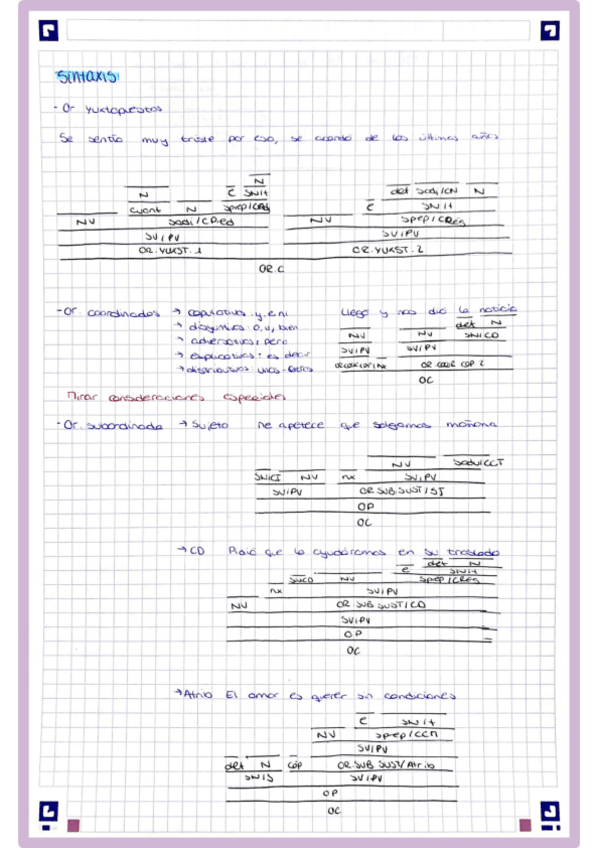 Sintaxis
- Or yuxtapuestas
Se sentía muy triste por eso, se acordó de los últimos años
N
N E SN/t det Sadj/CN N
cuant N Sprep/CAdj E SN/t
NV Sadj/CPred NV Sprep/CReg
SV/PV SV/PV
OR.YUXST.1 OR.YUXST.2
OR.C
- Or. coordinadas → copulativa: y, e, ni Llegó y nos dio la noticia
→ disyuntiva: o, u, bien det N
→ adversativa: pero NV NV SN/CD
→ explicativas: es decir SV/PV SV/PV
→ distributivas: unos-otros nx OR COOR COP 2
OC
Mirar consideraciones especiales
- Or. subordinada → Sujeto Me apetece que salgamos mañana
NV Sadv/CCT
SN/CI NV nx SV/PV
SV/PV OR SUB SUST/SJ
OP
OC
→ CD Pidió que la ayudáramos en su traslado
det N
E SN/t
SN/CD NV Sprep/CReg
nx SV/PV
NV OR SUB SUST/CD
SV/PV
OP
OC
→ Atrib El amor es querer sin condiciones
E SN/t
NV Sprep/CCM
SV/PV
det N cóp OR SUB SUST/Atrib
SN/S SV/PV
OP
OC